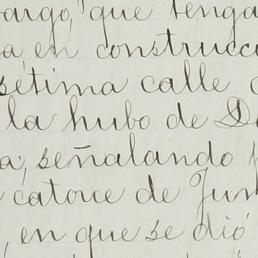 bargo, que tenga
a en construcci
sétima calle
la hubo de D
a, señalando
catorce de Jun
, en que se dió